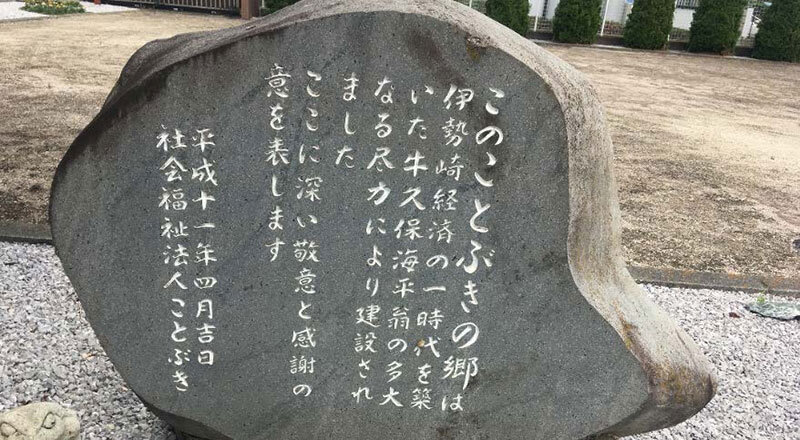 このことぶきの郷は
伊勢崎経済の一時代を築
いた牛久保海平翁の多大
なる尽力により建設され
ました
ここに深い敬意と感謝の
意を表します
平成十一年四月吉日
社会福祉法人ことぶき